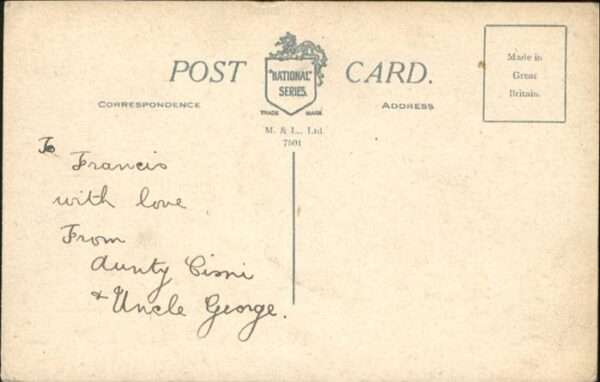 POST CARD.
"NATIONAL"
SERIES.
TRADE MARK
CORRESPONDENCE
ADDRESS
M. & L., Ltd.
7501
Made in
Great
Britain.
To
Francis
with love
From
Aunty Cissi
& Uncle George.